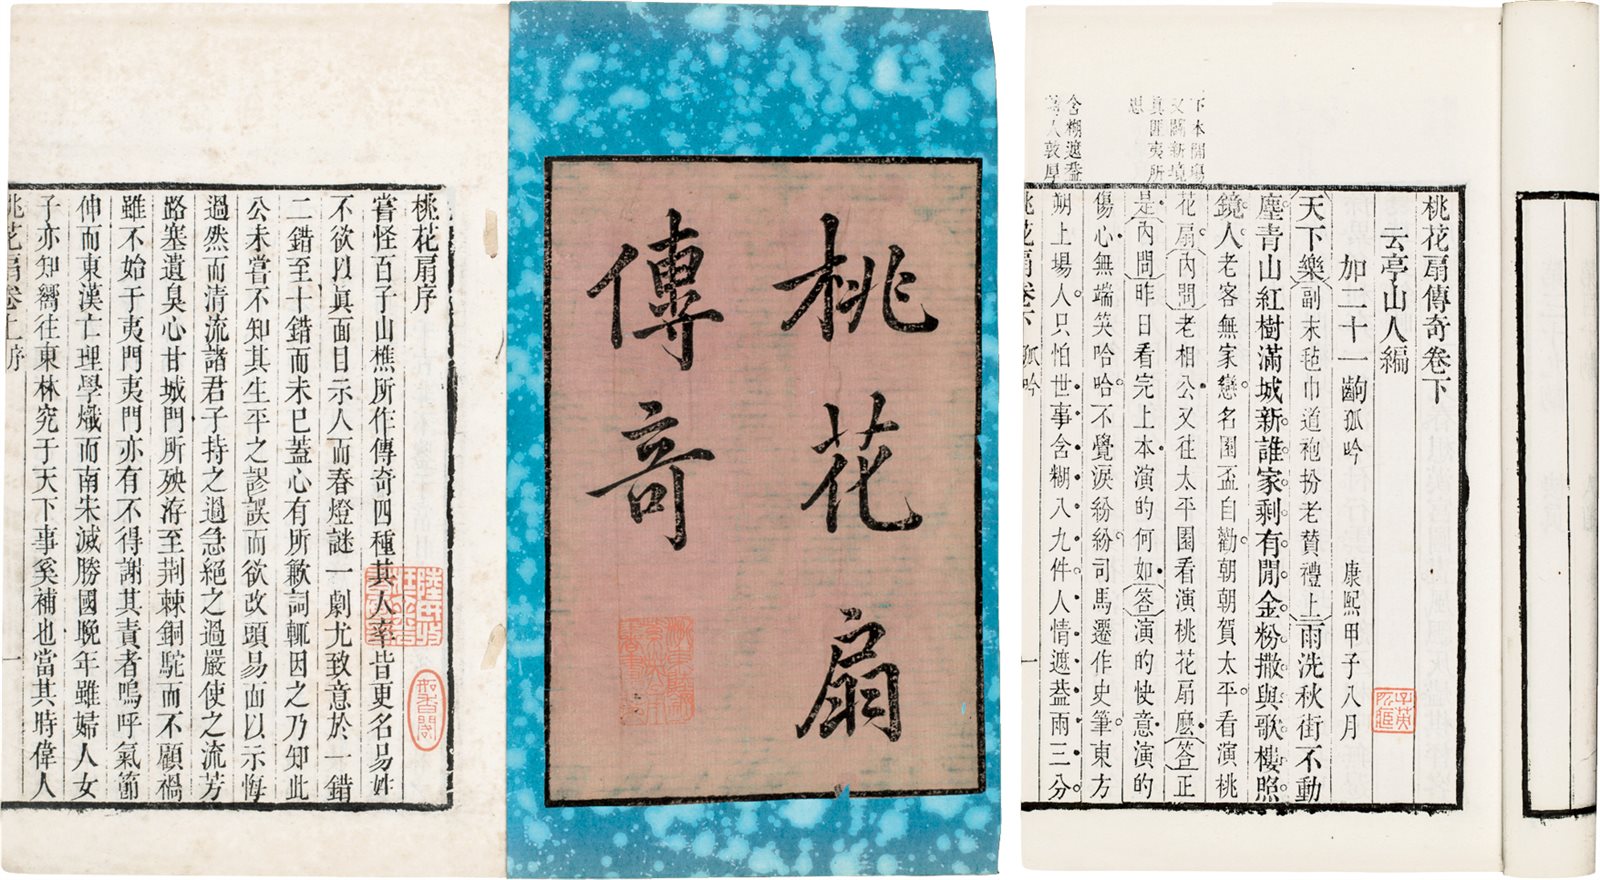 桃花扇序
嘗怪百子山樵所作傳奇四種其人率皆更名易姓
不欲以眞面目示人而春燈謎一劇尤致意於一錯
二錯至十錯而未已蓋心有所歉詞輒因之乃知此
公未嘗不知其生平之謬誤而欲改頭易面以示悔
過然而清流諸君子持之過急絕之過嚴使之流芳
路塞遺臭心甘城門所殃洊至荆棘銅駝而不顧禍
雖不始于夷門夷門亦有不得謝其責者嗚呼氣節
伸而東漢亡理學熾而南宋滅勝國晚年雖婦人女
子亦知嚮往東林究于天下事奚補也當其時偉人
桃花扇卷上序
一
如香閣
桃花扇
傳奇
桃花扇傳奇卷下
云亭山人編
加二十一齣孤吟
康熙甲子八月
天下樂副末氊巾道袍扮老贊禮上雨洗秋街不動
塵青山紅樹滿城新誰家剩有閒金粉撒與歌樓照
鏡人老客無家戀名園盃自勸朝朝賀太平看演桃
花扇內問老相公又往太平園看演桃花扇麽答正
是內問昨日看完上本演的何如答演的快意演的
傷心無端笑哈哈不覺淚紛紛司馬遷作史筆東方
朔上場人只怕世事含糊八九件人情遮葢雨三分
桃花扇卷下
孤吟
一
下本開塲
又闢新境
眞匪夷所
思
含糊遮葢
詩人敦厚